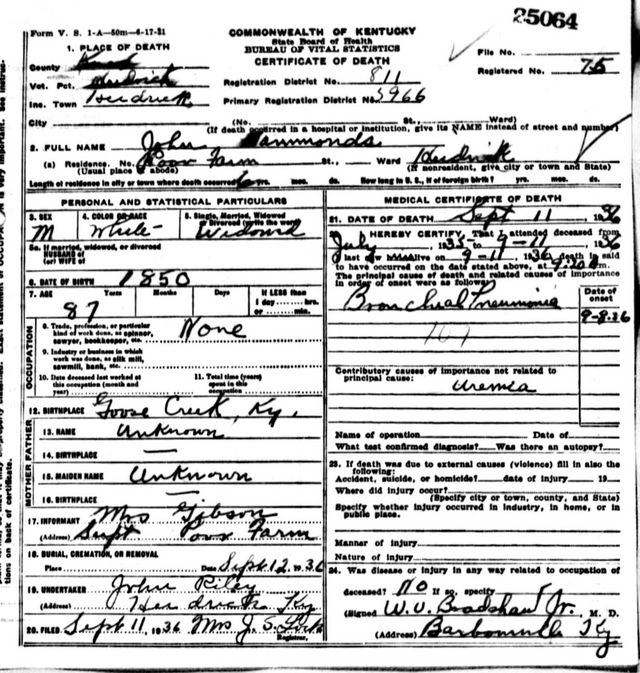 25064
Form V. S. 1-A—50m—6-17-31
COMMONWEALTH OF KENTUCKY
State Board of Health
BUREAU OF VITAL STATISTICS
CERTIFICATE OF DEATH
File No.
Registered No. 75
1. PLACE OF DEATH
County Knox
Vot. Pct.
Inc. Town
Registration District No. 811
Primary Registration District No. 5966
City (No. St., Ward)
(If death occurred in a hospital or institution, give its NAME instead of street and number)
2. FULL NAME John Hammonds
(a) Residence. No. Poor Farm St., Ward
(Usual place of abode) (If nonresident, give city or town and State)
Length of residence in city or town where death occurred yrs. mos. ds. How long in U. S., if of foreign birth? yrs. mos. ds.
PERSONAL AND STATISTICAL PARTICULARS
3. SEX M
4. COLOR OR RACE White
5. Single, Married, Widowed or Divorced (write the word) Widowed
5a. If married, widowed, or divorced
HUSBAND of
(or) WIFE of
6. DATE OF BIRTH 1850
7. AGE Years Months Days If LESS than
87 1 day hrs.
or min.
OCCUPATION
8. Trade, profession, or particular
kind of work done, as spinner,
sawyer, bookkeeper, etc. None
9. Industry or business in which
work was done, as silk mill,
sawmill, bank, etc.
10. Date deceased last worked at
this occupation (month and
year)
11. Total time (years)
spent in this
occupation
12. BIRTHPLACE Goose Creek, Ky.
MOTHER FATHER
13. NAME Unknown
14. BIRTHPLACE —
15. MAIDEN NAME Unknown
16. BIRTHPLACE —
17. INFORMANT Mrs Gibson
(Address) Supt Poor Farm
18. BURIAL, CREMATION, OR REMOVAL
Place Date Sept 12, 1936
19. UNDERTAKER John Riley
(Address) Ky
20. FILED Sept 11, 1936 Mrs J. S.
Registrar.
MEDICAL CERTIFICATE OF DEATH
21. DATE OF DEATH Sept 11, 1936
22. I HEREBY CERTIFY, That I attended deceased from
July 1935 to 9-11 1936
I last saw alive on 9-11, 1936 death is said
to have occurred on the date stated above, at m.
The principal cause of death and related causes of importance
in order of onset were as follows:
Date of onset
Bronchial Pneumonia 9-8-36
107
Contributory causes of importance not related to
principal cause:
Uremia
Name of operation Date of
What test confirmed diagnosis? Was there an autopsy?
23. If death was due to external causes (violence) fill in also the
following:
Accident, suicide, or homicide? date of injury 19
Where did injury occur?
(Specify city or town, county, and State)
Specify whether injury occurred in industry, in home, or in
public place.
Manner of injury
Nature of injury
24. Was disease or injury in any way related to occupation of
deceased? No If so, specify
(Signed W. U. Bradshaw Jr. M. D.
(Address) Barbourville Ky
tions on back of certificate.